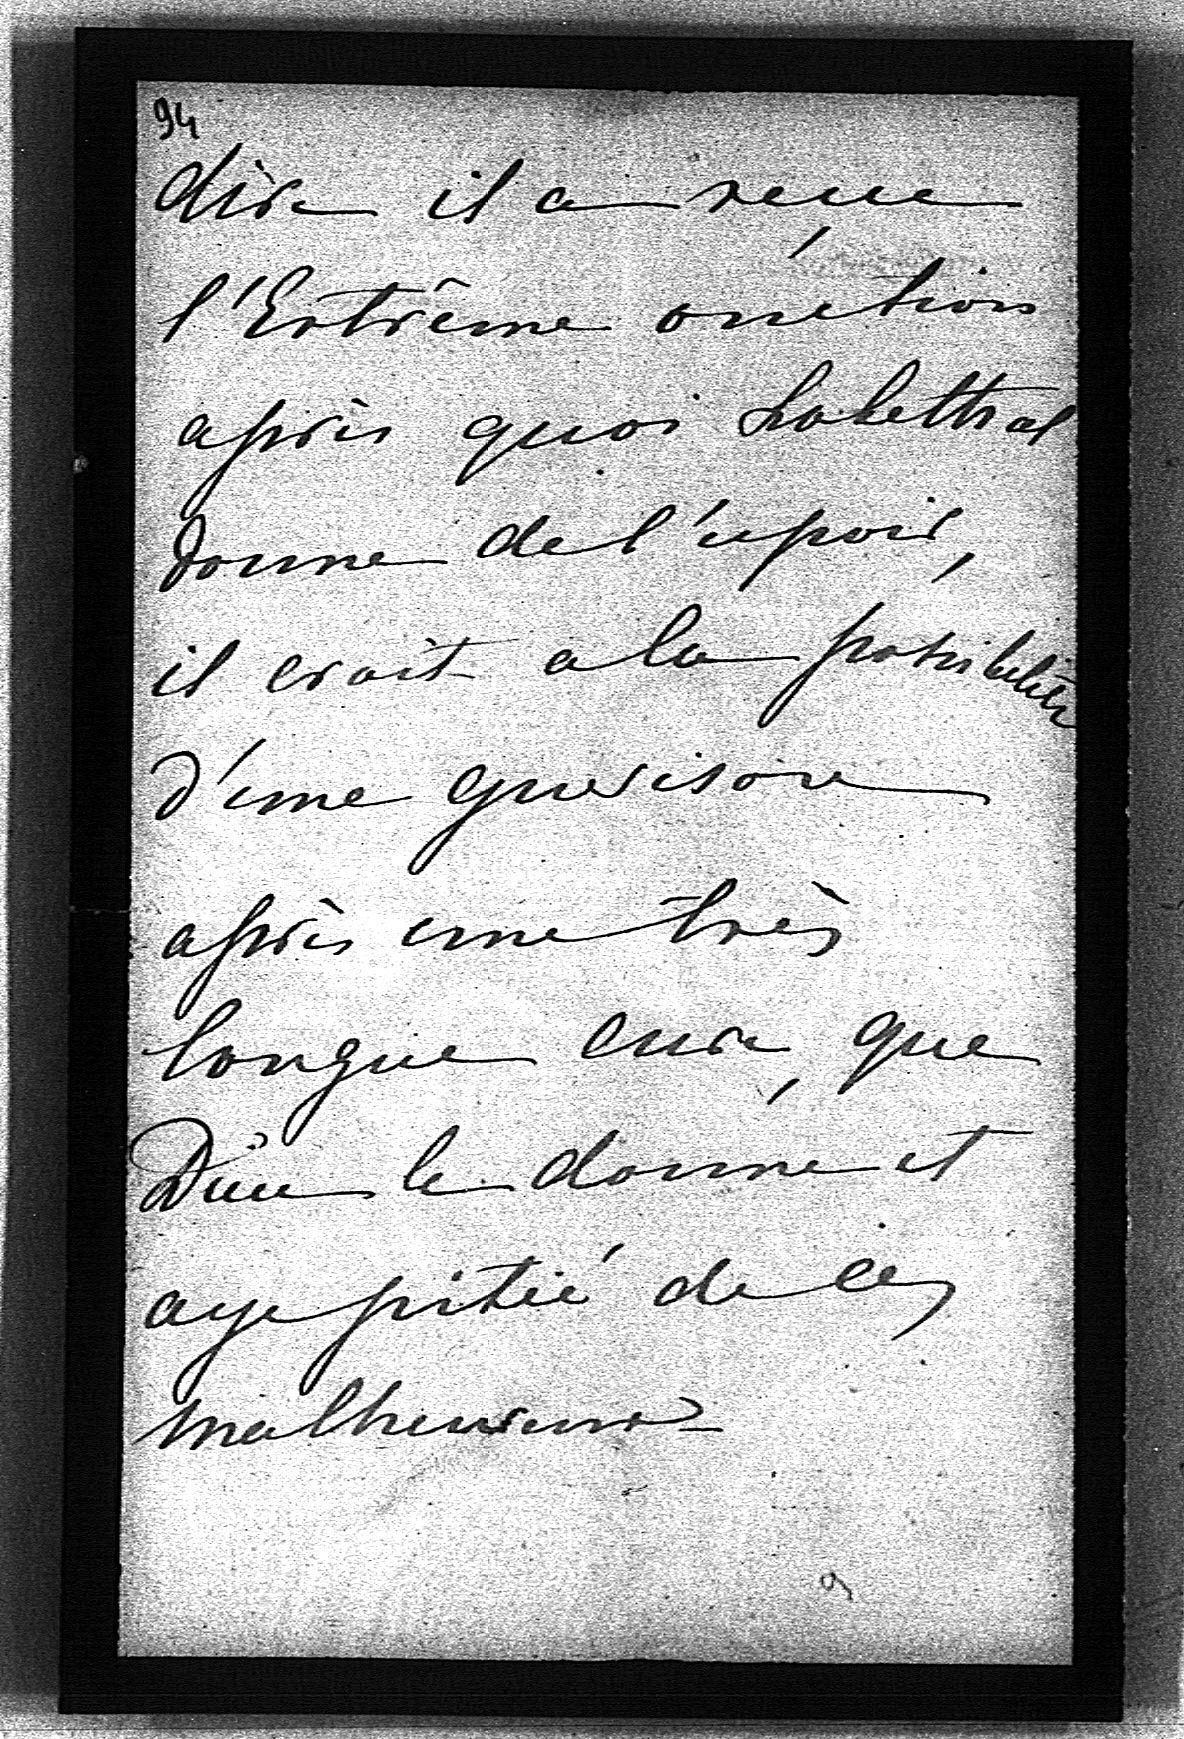 94
dire il a reçue
l'Extrême onction
après quoi
donne de l'espoir,
il croit a la possibilité
d'une guerison
après une très
longue cure, que
Dieu le donne et
aye pitié de ces
malheureux